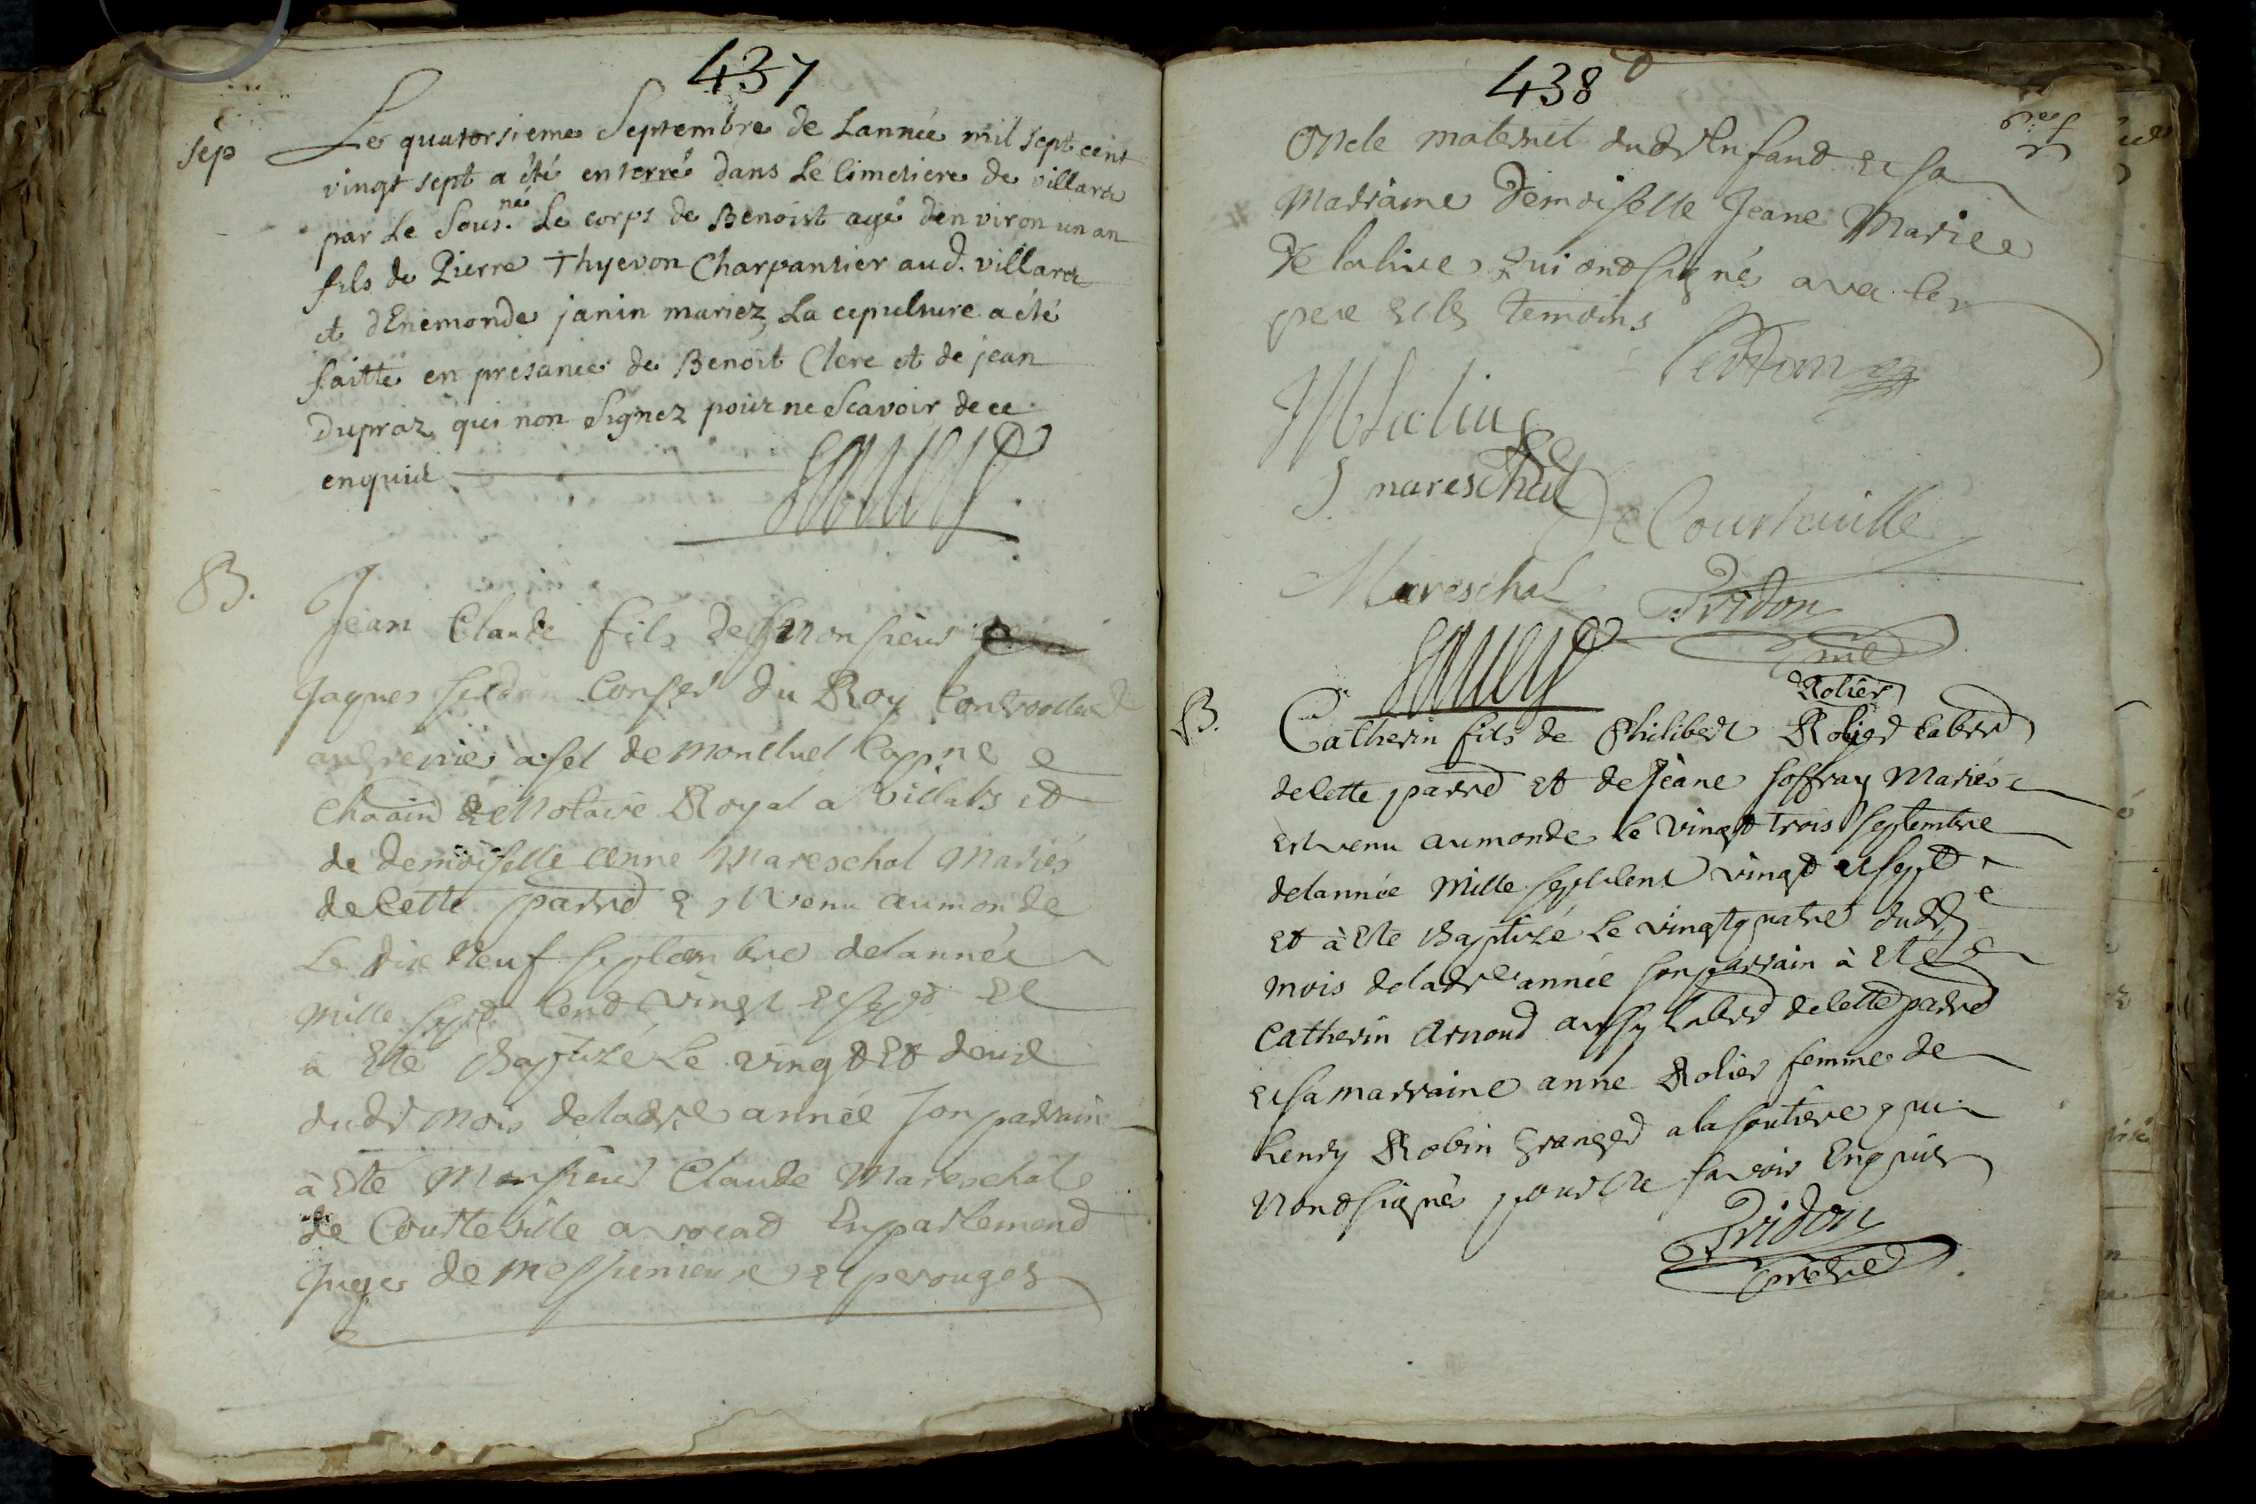 437
sep
Le quatorsieme Septembre de Lannée mil sept cent
vingt sept a été enterré dans Le Cimetiere de villard
par Le Sous.né Le corps de Benoist agé denviron un an
fils de Pierre Thyevon Charpantier aud. villard
et dEnemonde janin mariez, La cepulture a été
faitte en presance de Benoit Clere et de jean
Dupraz qui non Signez pour ne Scavoir de ce
enquid
B.
Jean Claude fils de monsieur
Jaques conser du Roy Controolleur
au grenier a sel de montluel Cappne
Chatain & Notaire Royal a villars et
de demoiselle anne Mareschal Mariés
de Cette parred Est venu au monde
Le dix neuf septembre delannée
mille sept Cend vingt et sept Et
a Eté Baptizé Le vingt Et deux
dudt mois de ladte année son parrain
à Eté Monsieur Claude Mareschal
de Courteville avocad En parlemend
Juge de messimieux et perouges
438
Oncle maternel dudt Enfand et sa
Marraine Demoiselle Jeane Marie
De lalive qui ond signé avec le
pere et les temoins
J mareschal
De Courteuille
Mareschal
Pridon
Rolier
B.
Catherin fils de Philiberd Rolier labrd
de Cette parred Et de Jeane soffray Mariés
est venu au monde le vingt trois septembre
de lannée Mille sept Cent vingt et sept
Et à Eté Baptizé Le vingt quatre dudt
mois de ladte année son parrain à Eté
Catherin Arnoud aussy Labrd de Cette parred
et sa marraine anne Rolier femme de
henry Robin granger a la soutiere qui
nond signés pour ne savoir Enquis
Pridon
pretre